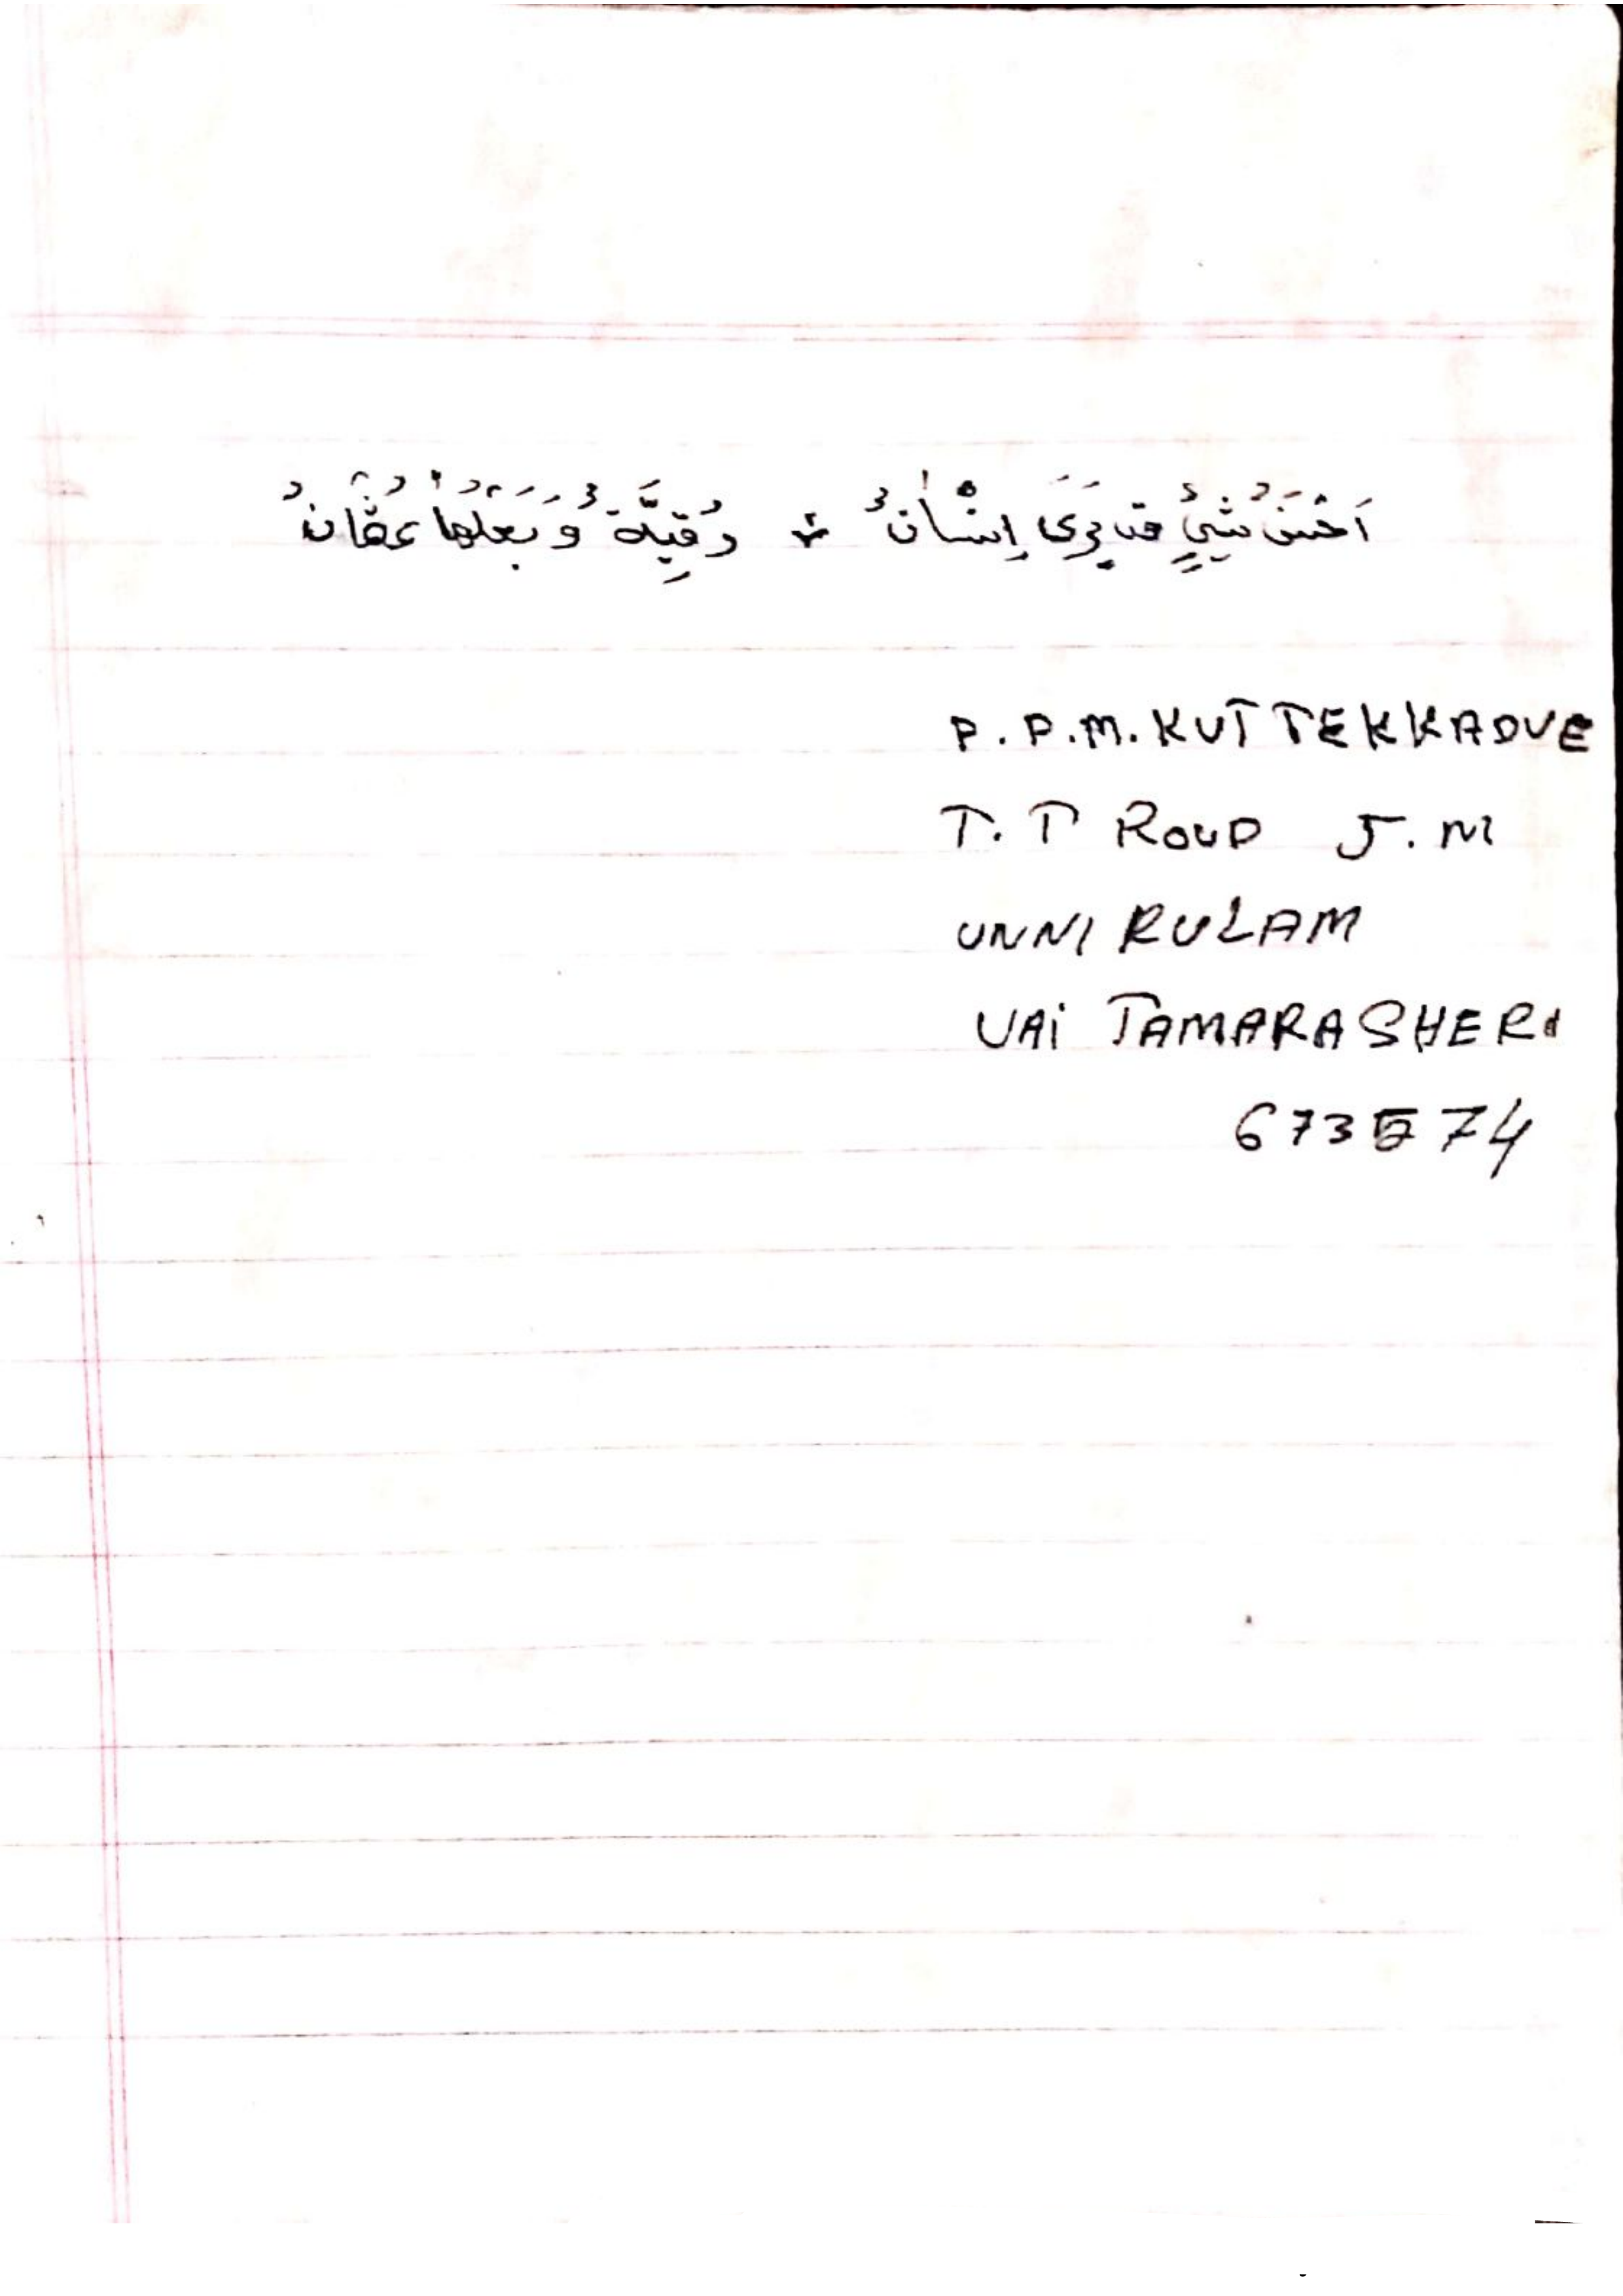 اَحْسَنُ شَيْءٍ قَد يَرَى اِنْسَانٌ * رُقِيَّةٌ وَبَعْلُهَا عُثْمَانُ
P.P.M.KUTTEKKADVE
T.T ROUD J.M
UNNI KULAM
VAI TAMARASHERI
673574